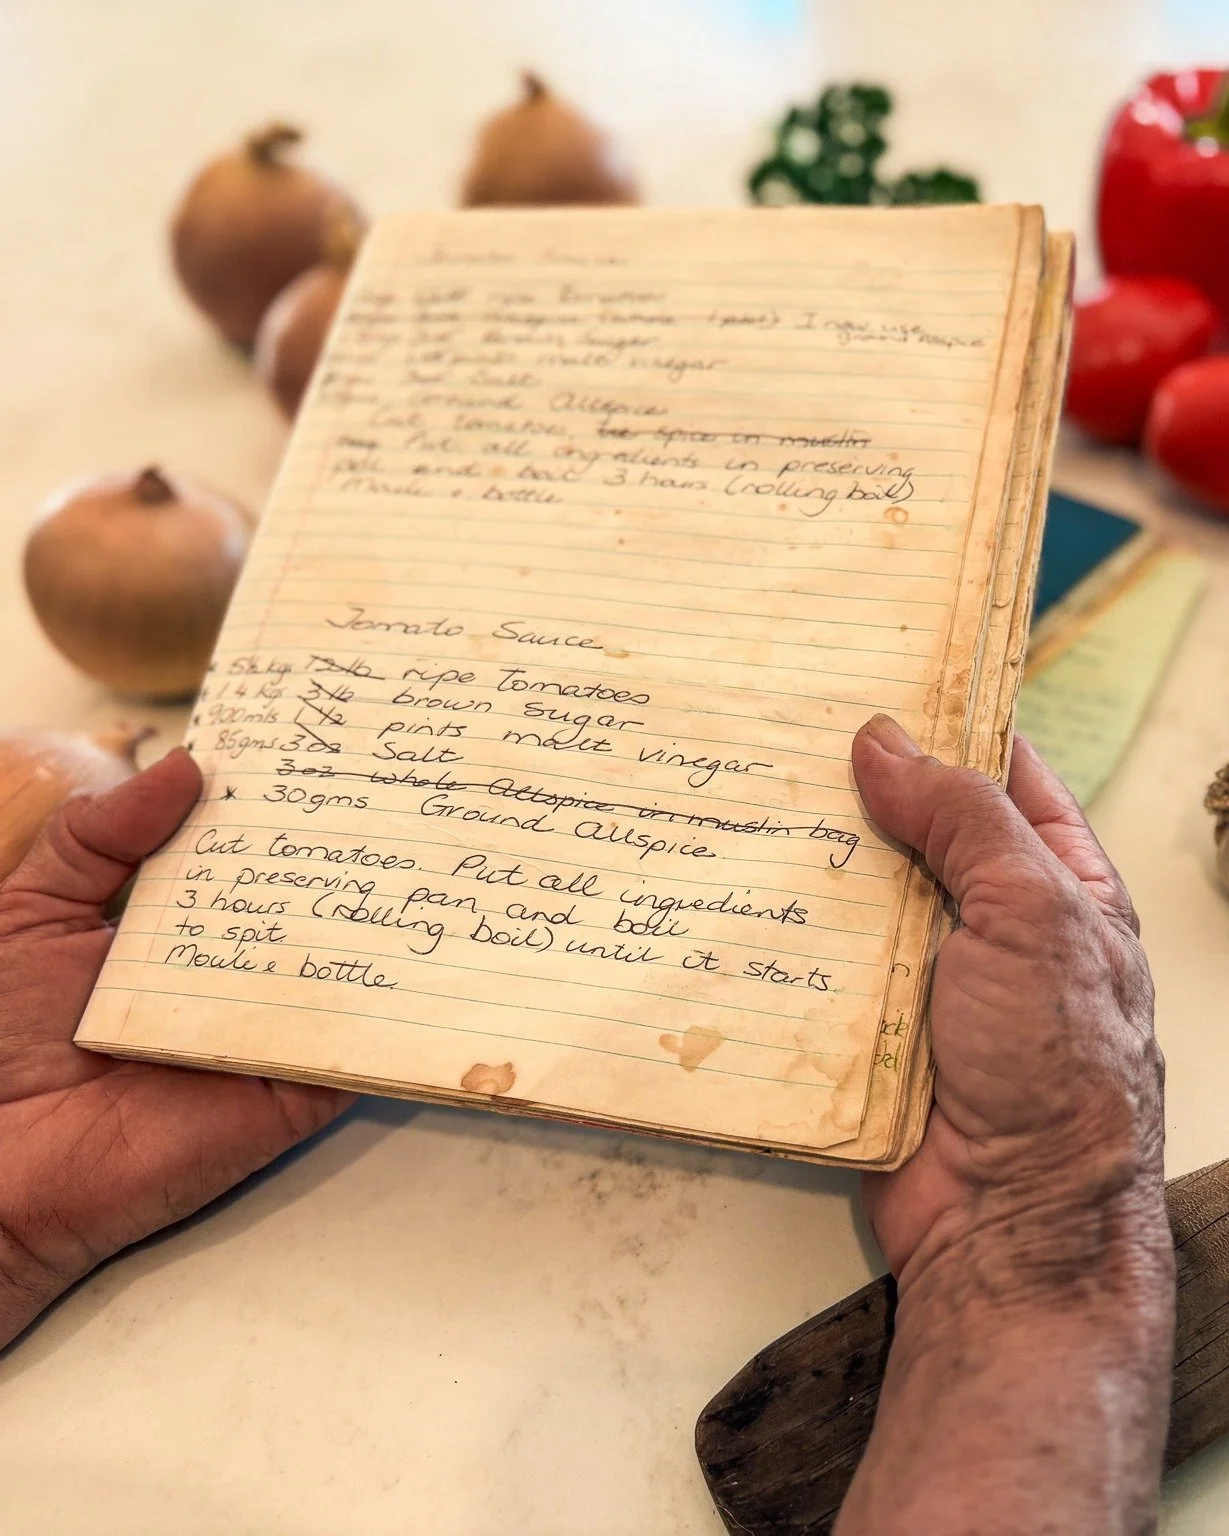 Tomato Sauce
ripe tomatoes
I now use
ground allspice
brown sugar
malt vinegar
Salt
Ground Allspice
Cut tomatoes, tie spice in muslin
bag Put all ingredients in preserving
pan and boil 3 hours (rolling boil)
Moulie & bottle
Tomato Sauce
12lb ripe tomatoes
* 1.4 kgs 3lb brown sugar
* 900mls 1½ pints malt vinegar
* 85gms 3oz Salt
3oz whole Allspice in muslin bag
* 30gms Ground allspice
Cut tomatoes. Put all ingredients
in preserving pan and boil
3 hours (rolling boil) until it starts
to spit.
Moulie & bottle.